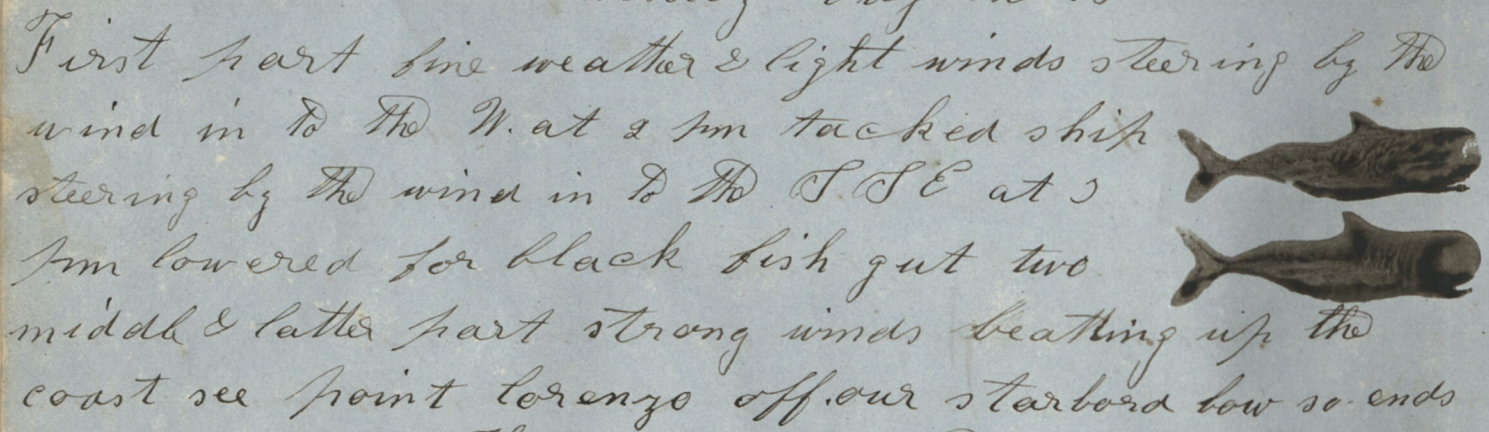 First part fine weather & light winds steering by the
wind in to the W. at 2 pm tacked ship
steering by the wind in to the SSE at 3
pm lowered for black fish gut two
middle & latter part strong winds beatting up the
coast see point lorenzo off our starbord bow so ends